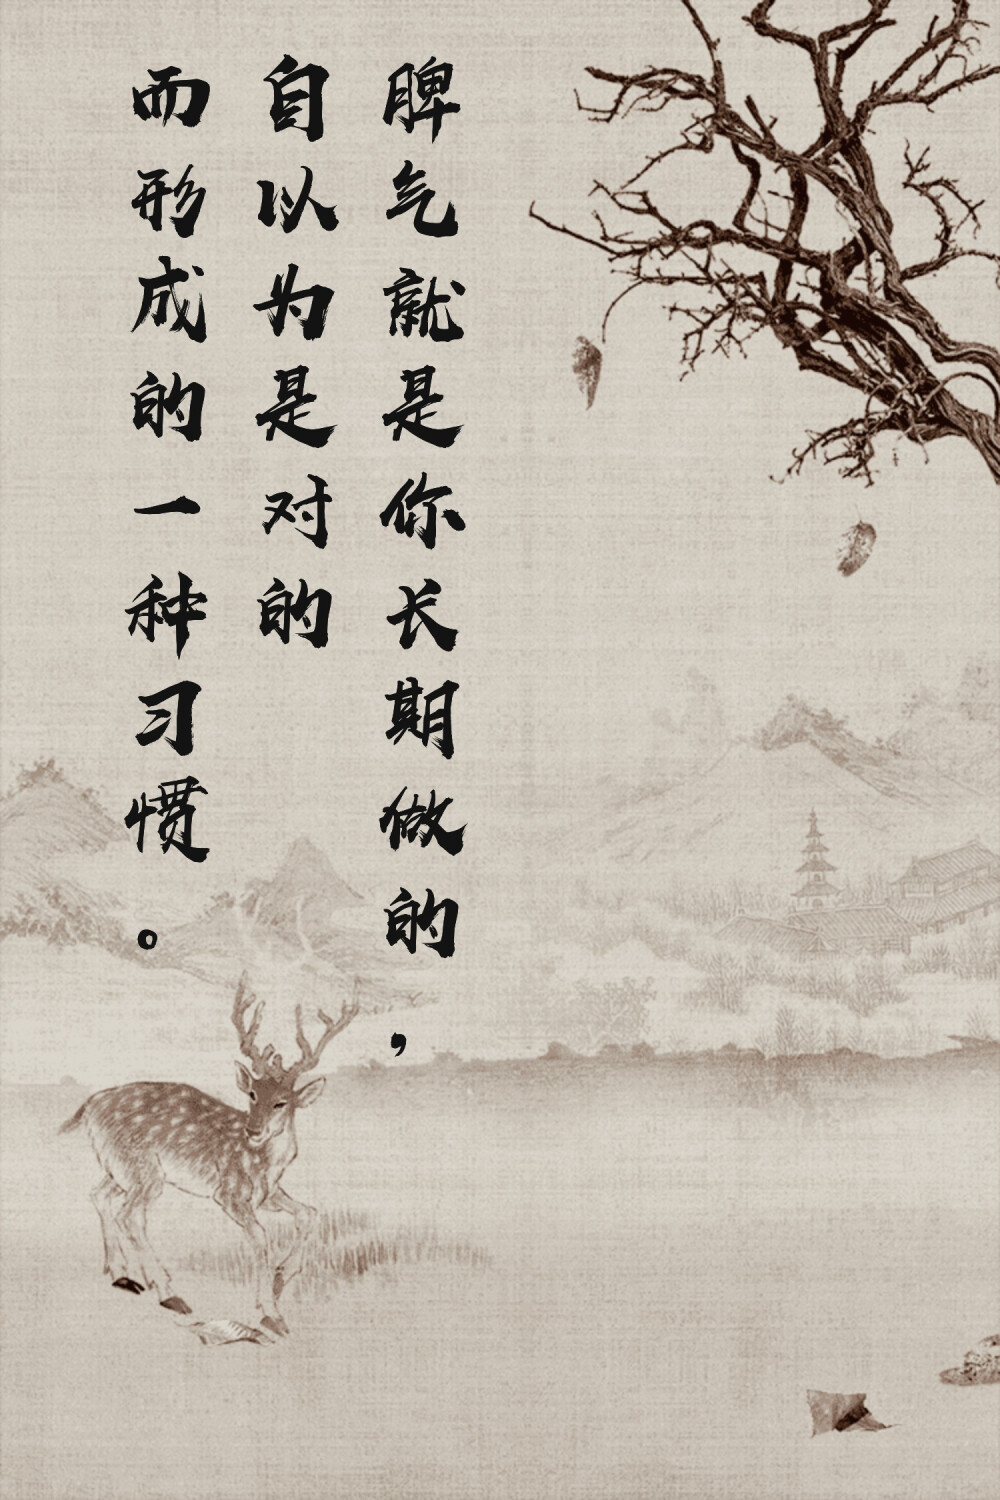 脾气就是你长期做的，
自以为是对的
而形成的一种习惯。